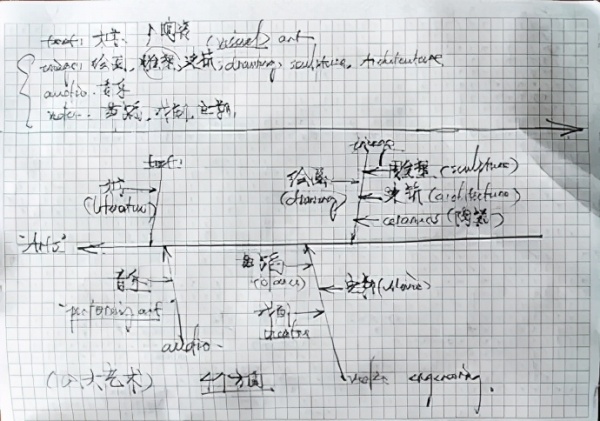 text: 文学 陶瓷 (visual) art
image: 绘画, 雕塑, 建筑; drawing, sculpture, Architecture
audio. 音乐
video. 舞蹈, 戏剧, 电影.
text. image
绘画 (drawing)
雕塑 (sculpture)
文学 (literature)
建筑 (architecture)
ceramics (陶瓷)
"Arts"
音乐
舞蹈 (Dance)
电影 (Movie)
"performing art"
戏剧 theater
audio.
(八大艺术) 个方面. video